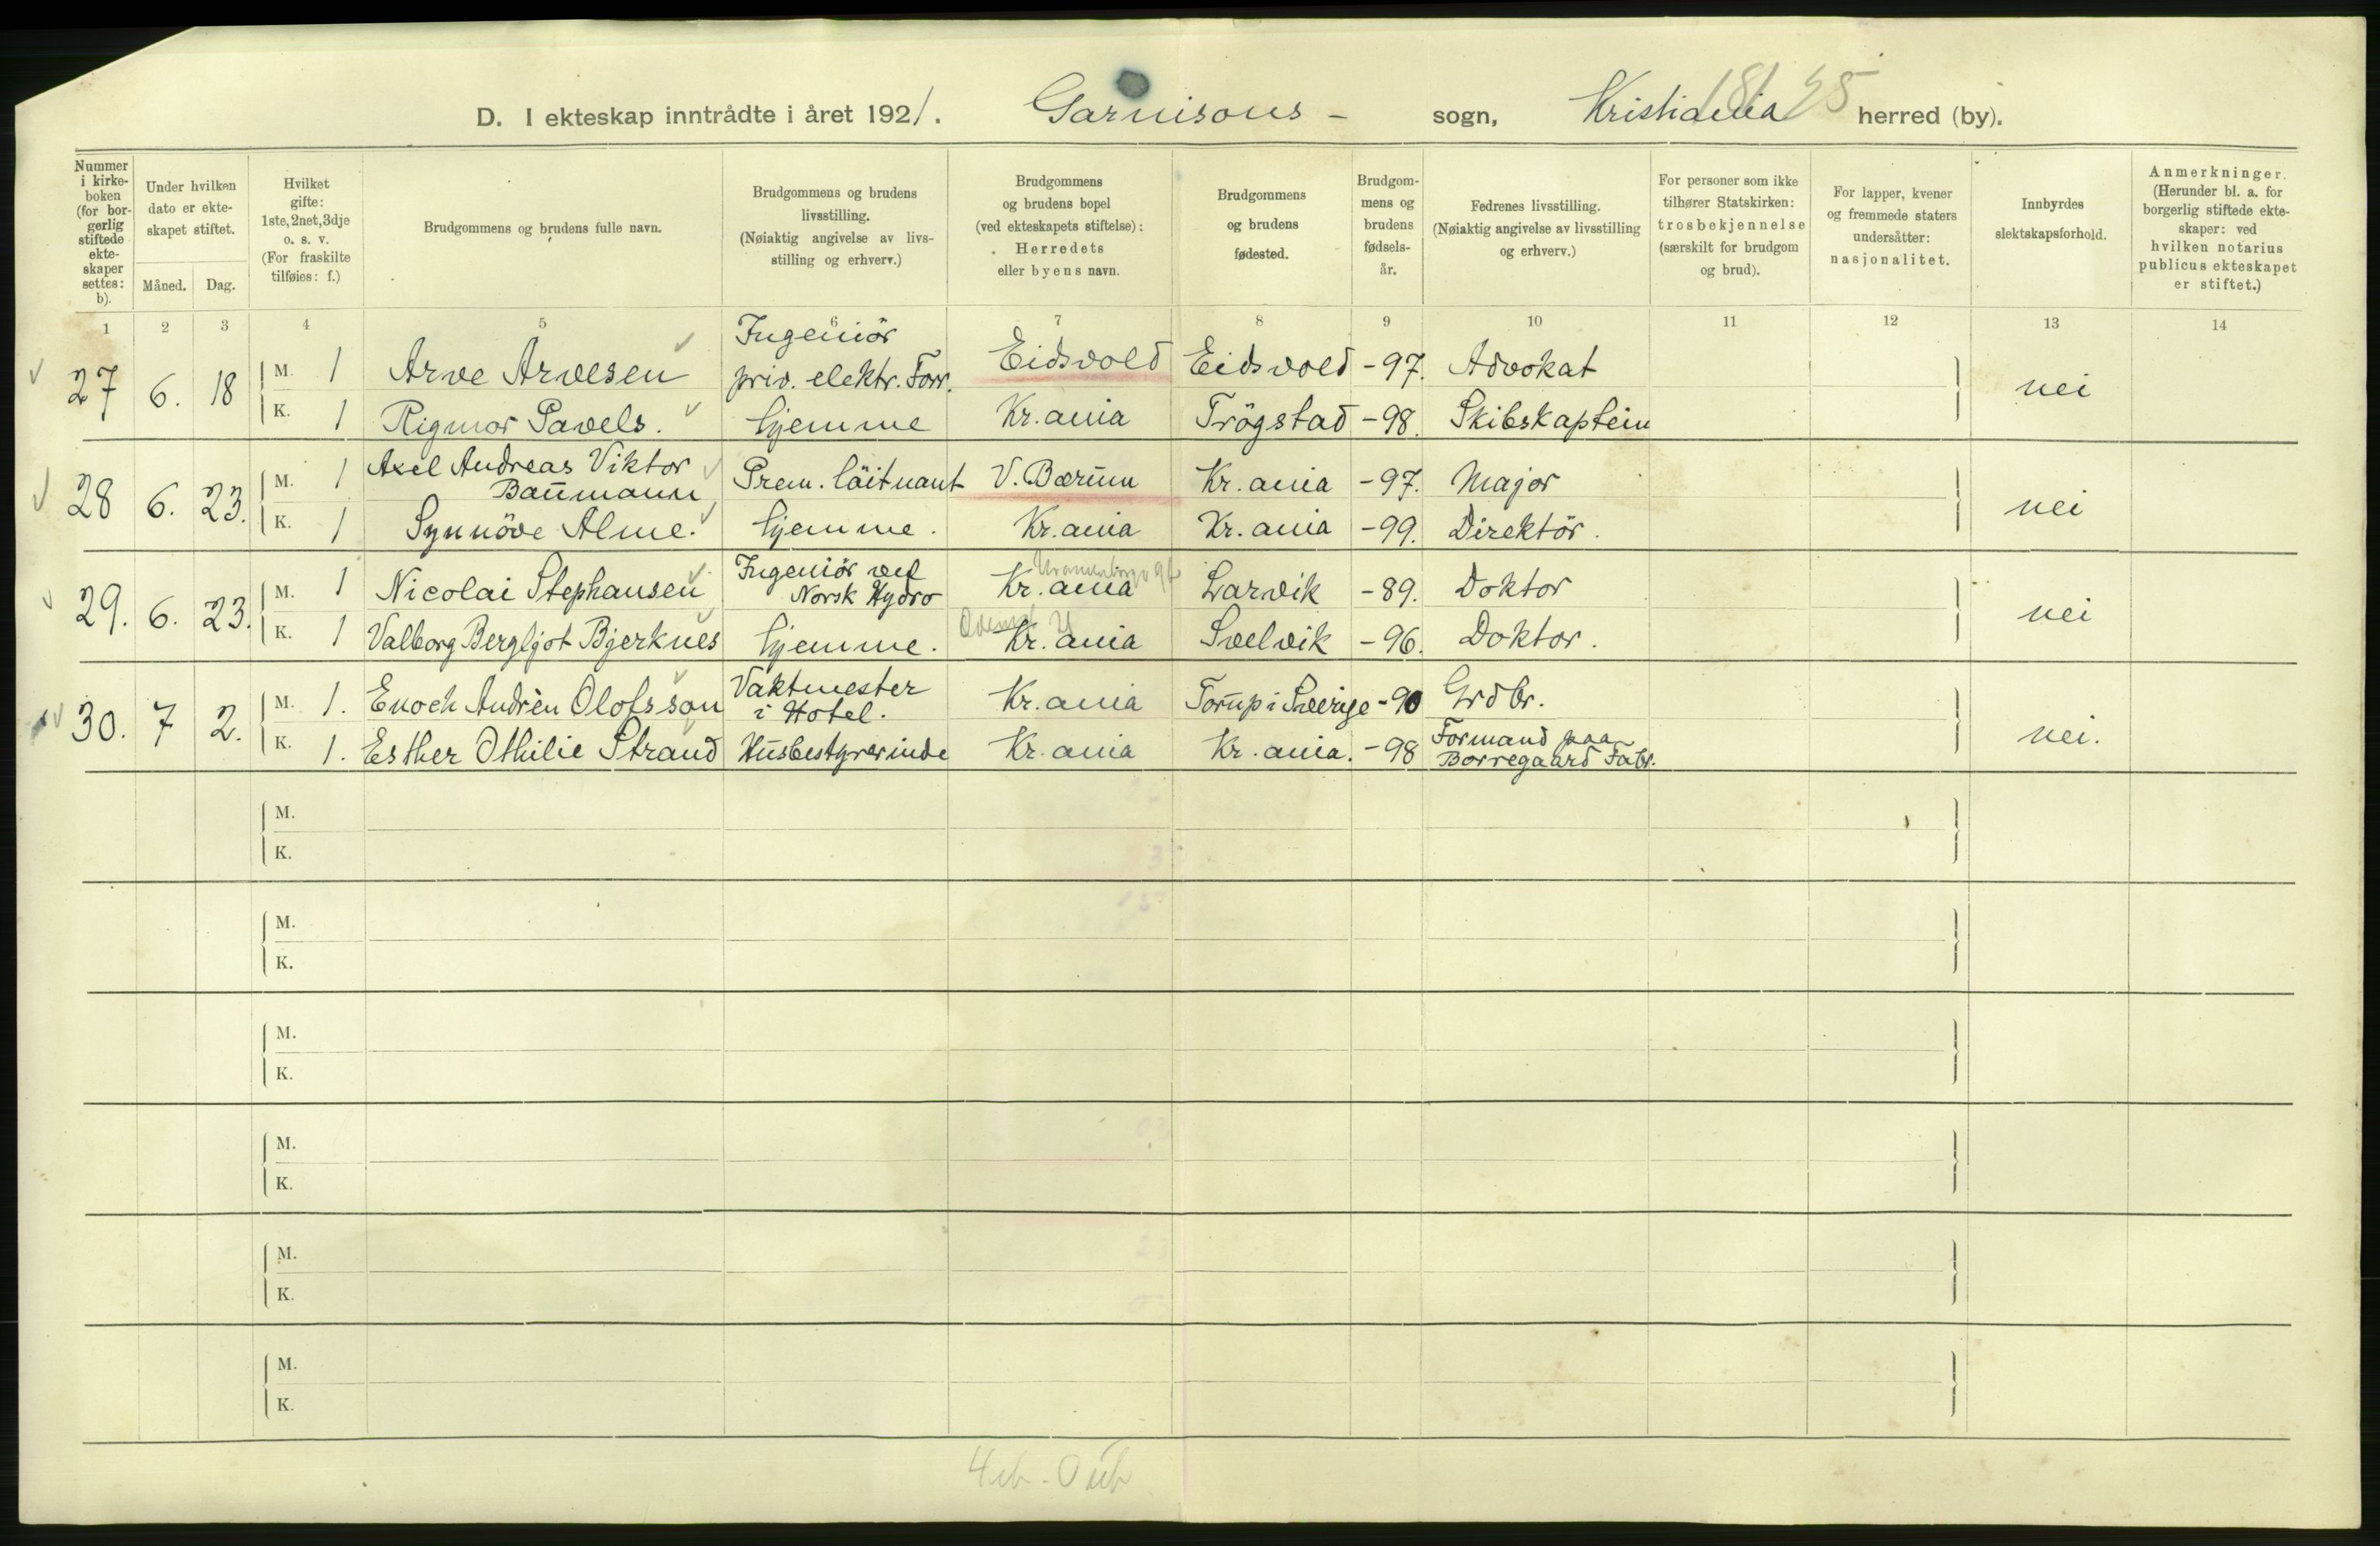 D. I ekteskap inntrådte i året 1921. Garnisons - sogn, Kristiania herred (by).
Nummer i kirke-boken (for bor-gerlig stiftede ekte-skaper settes: b).
Under hvilken dato er ekte-skapet stiftet.
Måned. Dag.
Hvilket gifte: 1ste, 2net, 3dje o. s. v. (For fraskilte tilføies: f.)
Brudgommens og brudens fulle navn.
Brudgommens og brudens livsstilling. (Nøiaktig angivelse av livs-stilling og erhverv.)
Brudgommens og brudens bopel (ved ekteskapets stiftelse): Herredets eller byens navn.
Brudgommens og brudens fødested.
Brudgom-mens og brudens fødsels-år.
Fedrenes livsstilling. (Nøiaktig angivelse av livsstilling og erhverv.)
For personer som ikke tilhører Statskirken: trosbekjennelse (særskilt for brudgom og brud).
For lapper, kvener og fremmede staters undersåtter: nasjonalitet.
Innbyrdes slektskapsforhold.
Anmerkninger. (Herunder bl. a. for borgerlig stiftede ekte-skaper: ved hvilken notarius publicus ekteskapet er stiftet.)
1 2 3 4 5 6 7 8 9 10 11 12 13 14
27 6. 18 M. 1 Arve Arvesen Ingeniör priv. elektr. Forr. Eidsvold Eidsvold -97. Advokat nei
K. 1 Rigmor Pavels. hjemme Kr.ania Trögstad -98. Skibskaptein
28 6. 23. M. 1 Axel Andreas Viktor Baumann Prem. löitnant V. Bærum Kr.ania -97. Major nei
K. 1 Synnöve Alme. hjemme. Kr.ania Kr.ania -99. Direktör.
29. 6. 23. M. 1 Nicolai Stephansen Ingeniör ved Norsk Hydro Kr.ania Larvik -89. Doktor nei
K. 1 Valborg Bergljot Bjerknes hjemme. Kr.ania Svelvik -96. Doktor.
30. 7 2. M. 1. Enoch Andrèn Olofsson Vaktmester i Hotel. Kr.ania Torup i Sverige -90 Grdbr. nei.
K. 1. Esther Othilie Strand Husbestyrerinde Kr.ania Kr.ania. -98 Formand paa Borregaard Fabr.
M.
K.
M.
K.
M.
K.
M.
K.
M.
K.
M.
K.